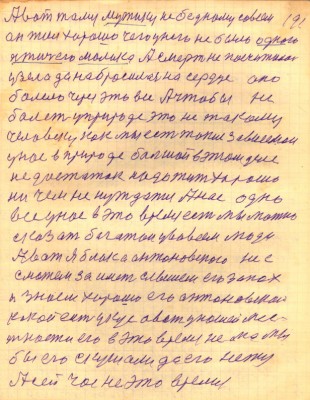 А вот тому мужику не бедному совсем 191
он жил хорошо чего у него не было одного
птичего молока А смерть не посчиталась
взяла да набросилась на сердце оно
болело через это все А чтобы не
болеть природе это не такому
человеку как мы есть такие
у нас в природе большой в этом
недостаток надо жить хорошо
ни чем не нуждаться А нас одно
все у нас в это время есть мы можно
сказать богатои во всем люда
А вот яблока антоновского не с
мы за имеет слышем его запах
и знаем хорошо его антоновской
какой есть вкус а вот у нашей мес
тности его в это время не мо мы
бы его скушали до его
А сейчас не это время